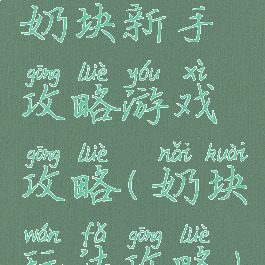 奶块新手
gōng lüè yóu xì
攻略游戏
gōng lüè nǎi kuài
攻略(奶块
wán fǎ gōng lüè
玩法攻略)